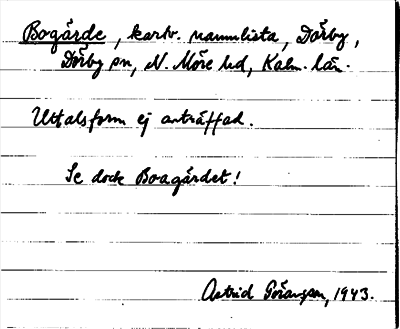 Bogårde, kartv. namnlista, Dörby,
Dörby sn, N. Möre hd, Kalm. län.
Uttalsform ej anträffad.
Se dock Boagärdet!
Astrid Göransson, 1943.